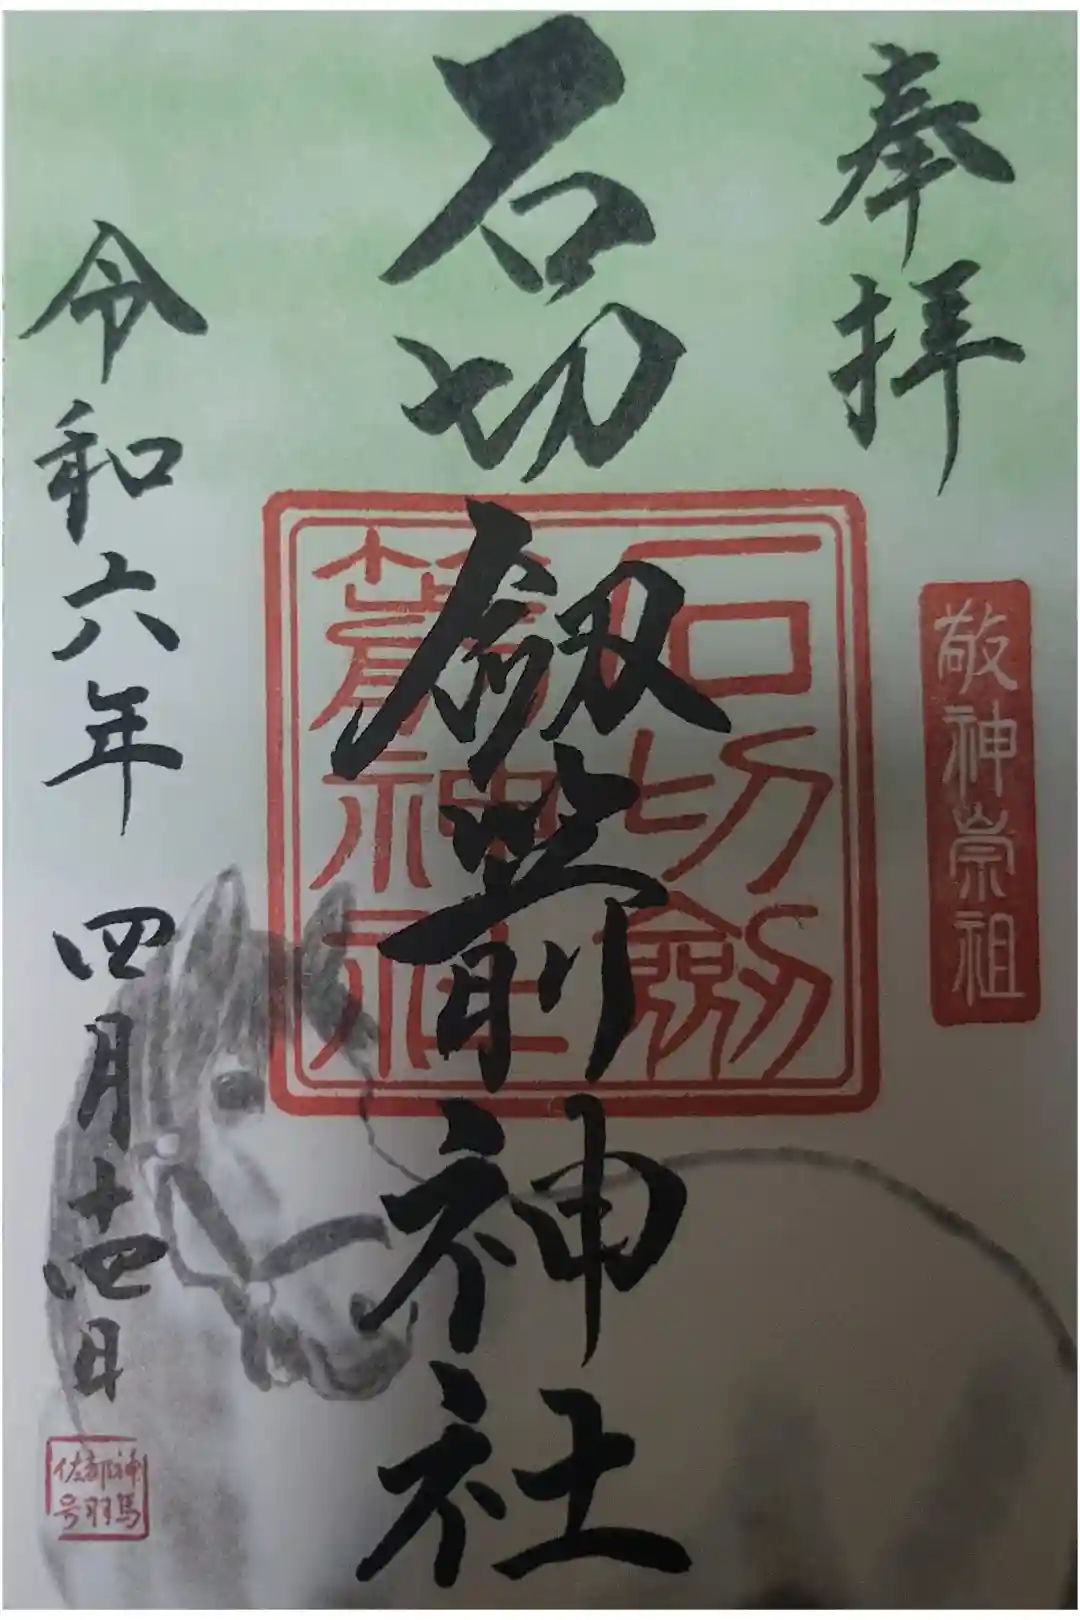 奉拝
敬神崇祖
石切劔箭神社
石切劔
箭神社
令和六年 四月十四日
神馬
都羽
佐号